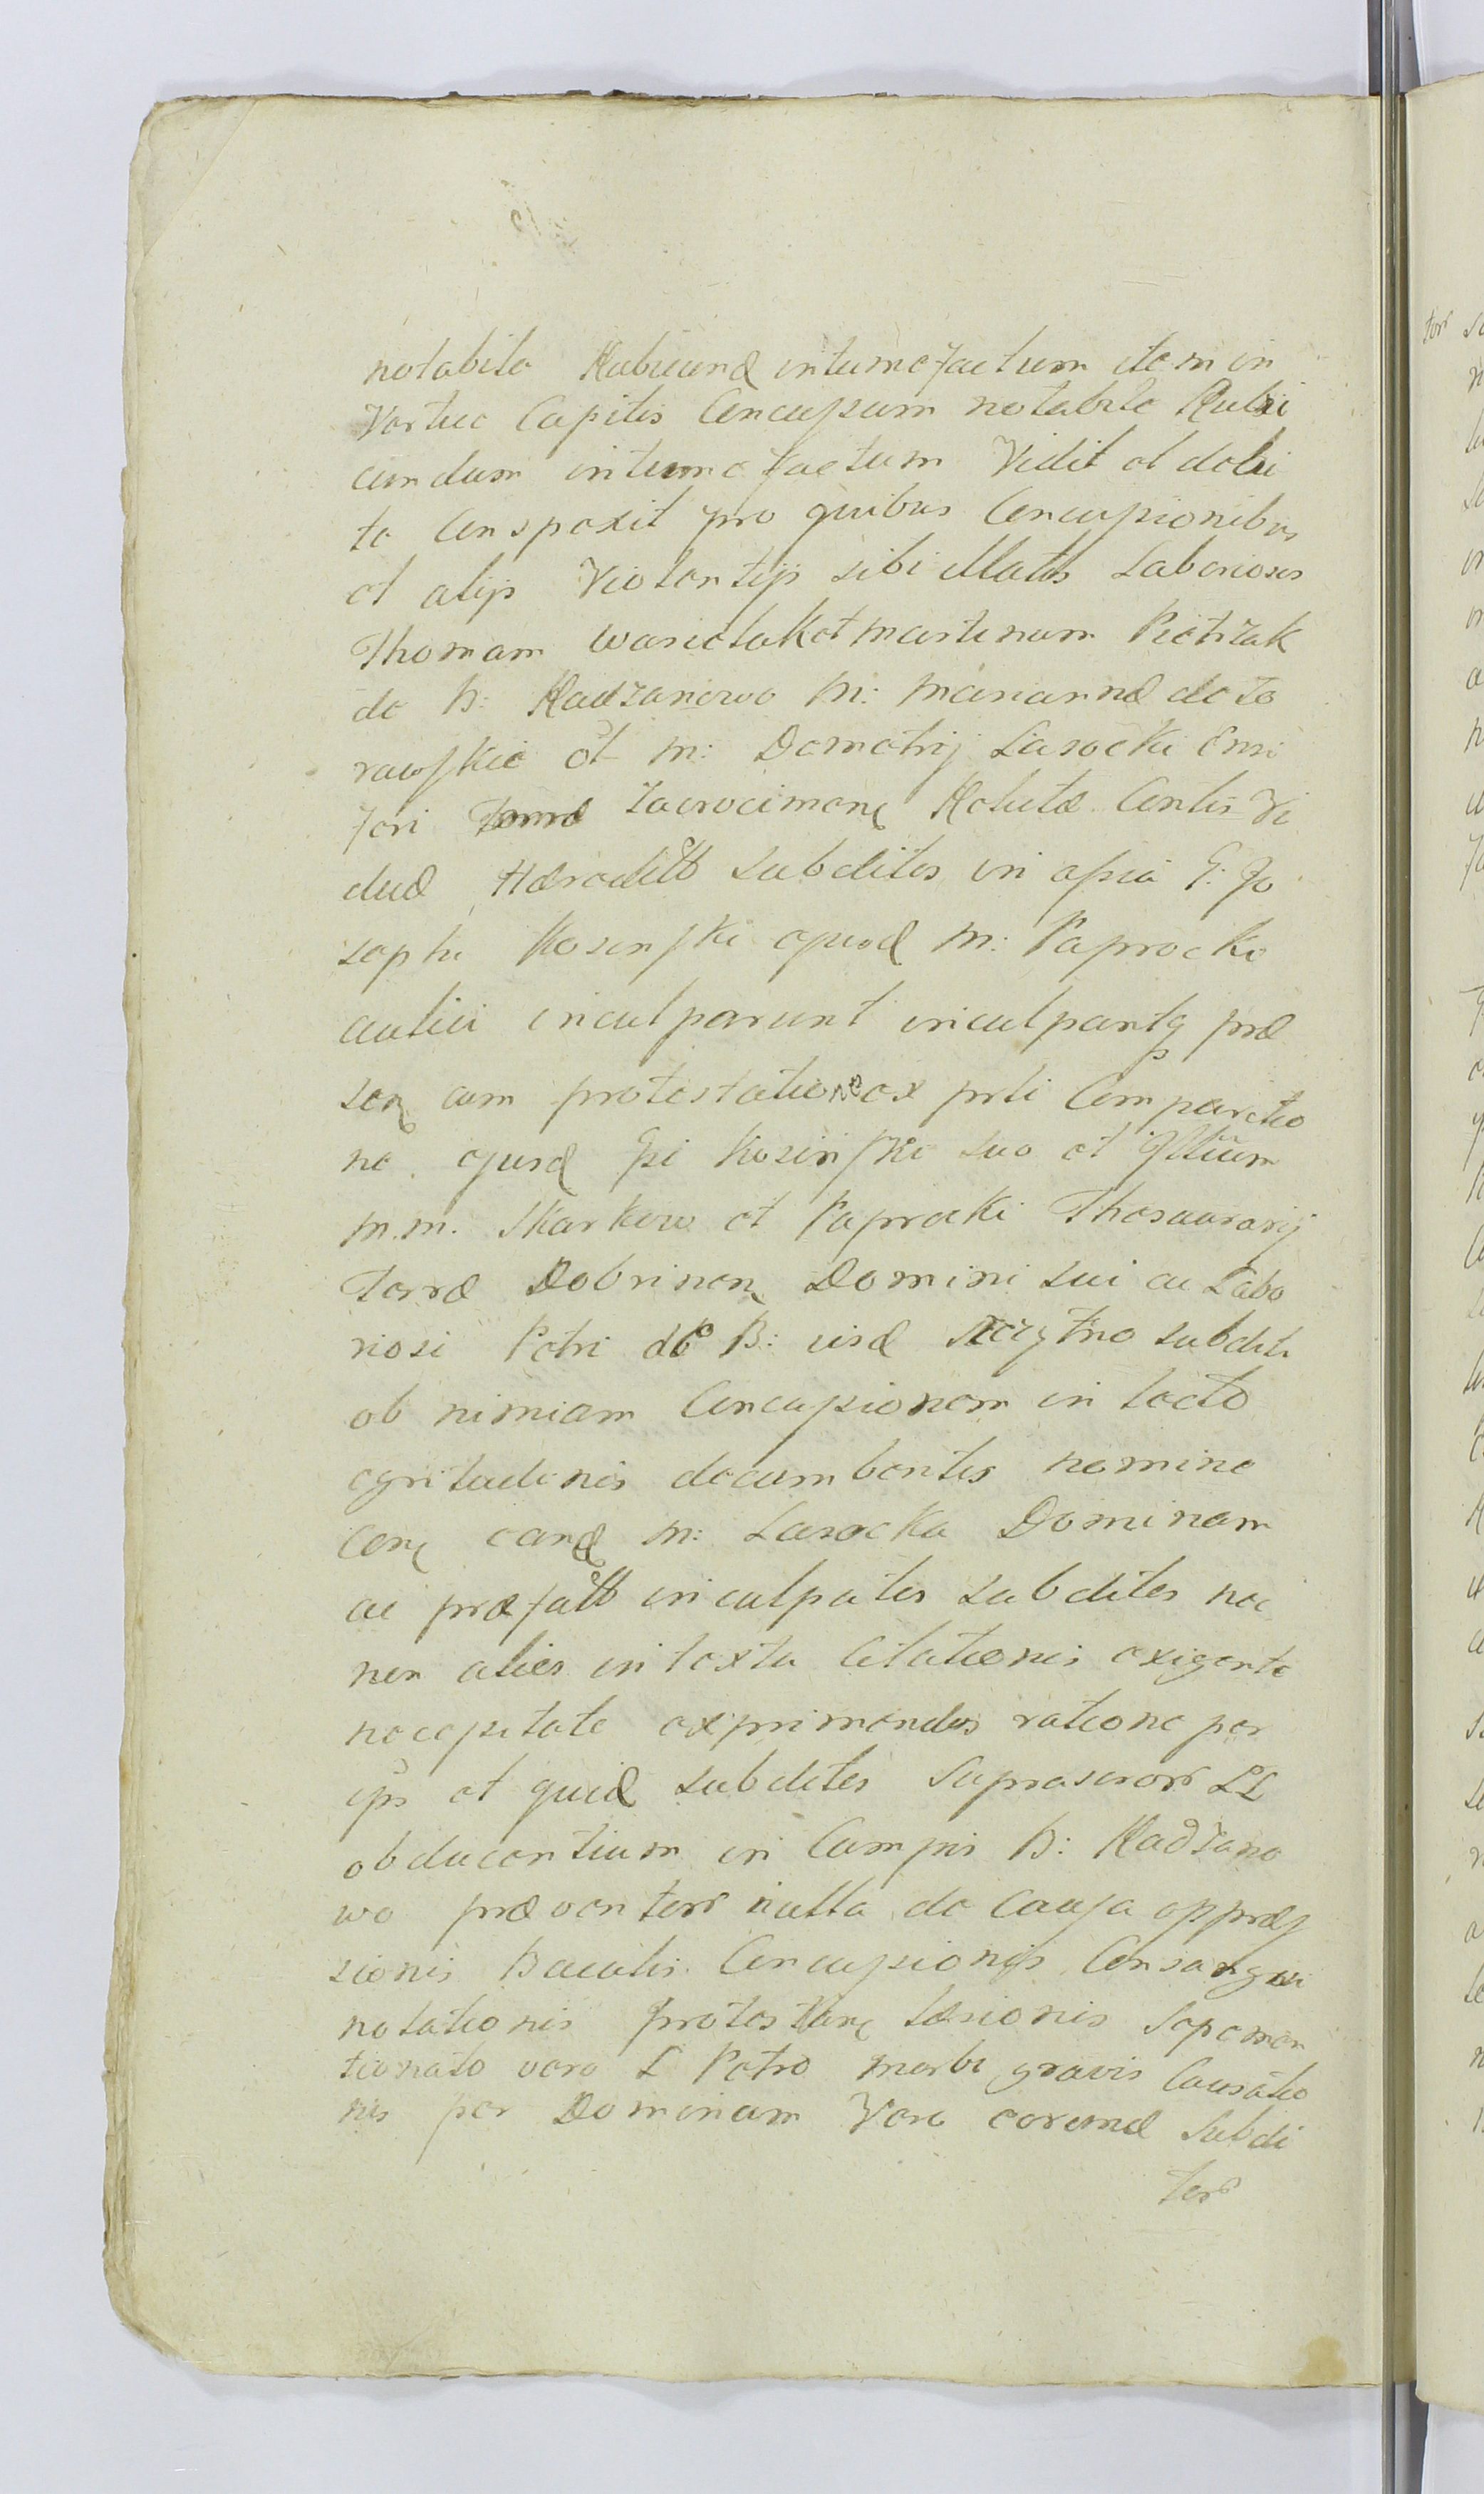 notabile Rubicund intumefactum item in
Vertice Capitis Concussum notabile Rubi
cundum intumefactum Vidit et debi
te Conspexit pro quibus Concussionibus
et alijs Violentijs sibi illatis Laboriosos
Thomam Wasiolak et Martinum Pietrzak
de B: Radzanowo M: Mariannæ de Zo
rawskie et M: Demetrij Lasocki Ensi
feri Terræ Zacrocimens Relictæ Contis Vi
duæ Hæredit subditos in assia G: Jo
sephi Kosinski apud M: Paprocki
aulici inculparunt inculpantq præ
sen cum protestatione ex prti Comparitio
ne ejusd Gsi Kosinski suo et Illium
M.M. Skarkow et Paprocki Thesaurarij
Terræ Dobrinen Domini sui ac Labo
riosi Petri de B: eisd Szczytno subditi
ob nimiam Concussionem in lecto
egritudinis decumbentis nomine
Con eand M: Lasocka Dominam
ac præfatt inculpatos subditos nec
non alios in textu Citationis exigente
necessitate exprimendos ratione per
eps et quid subditos Suprascrors LL
obducentium in Campis B: Radzano
wo præventors nulla de Causa oppræs
sionis Baculis Concussionis Consangui
notationis protestan læsionis Sepemen
tionato vero L Petro morbi gravis Causatio
nis per Dominam Vero eorund Subdi
tors